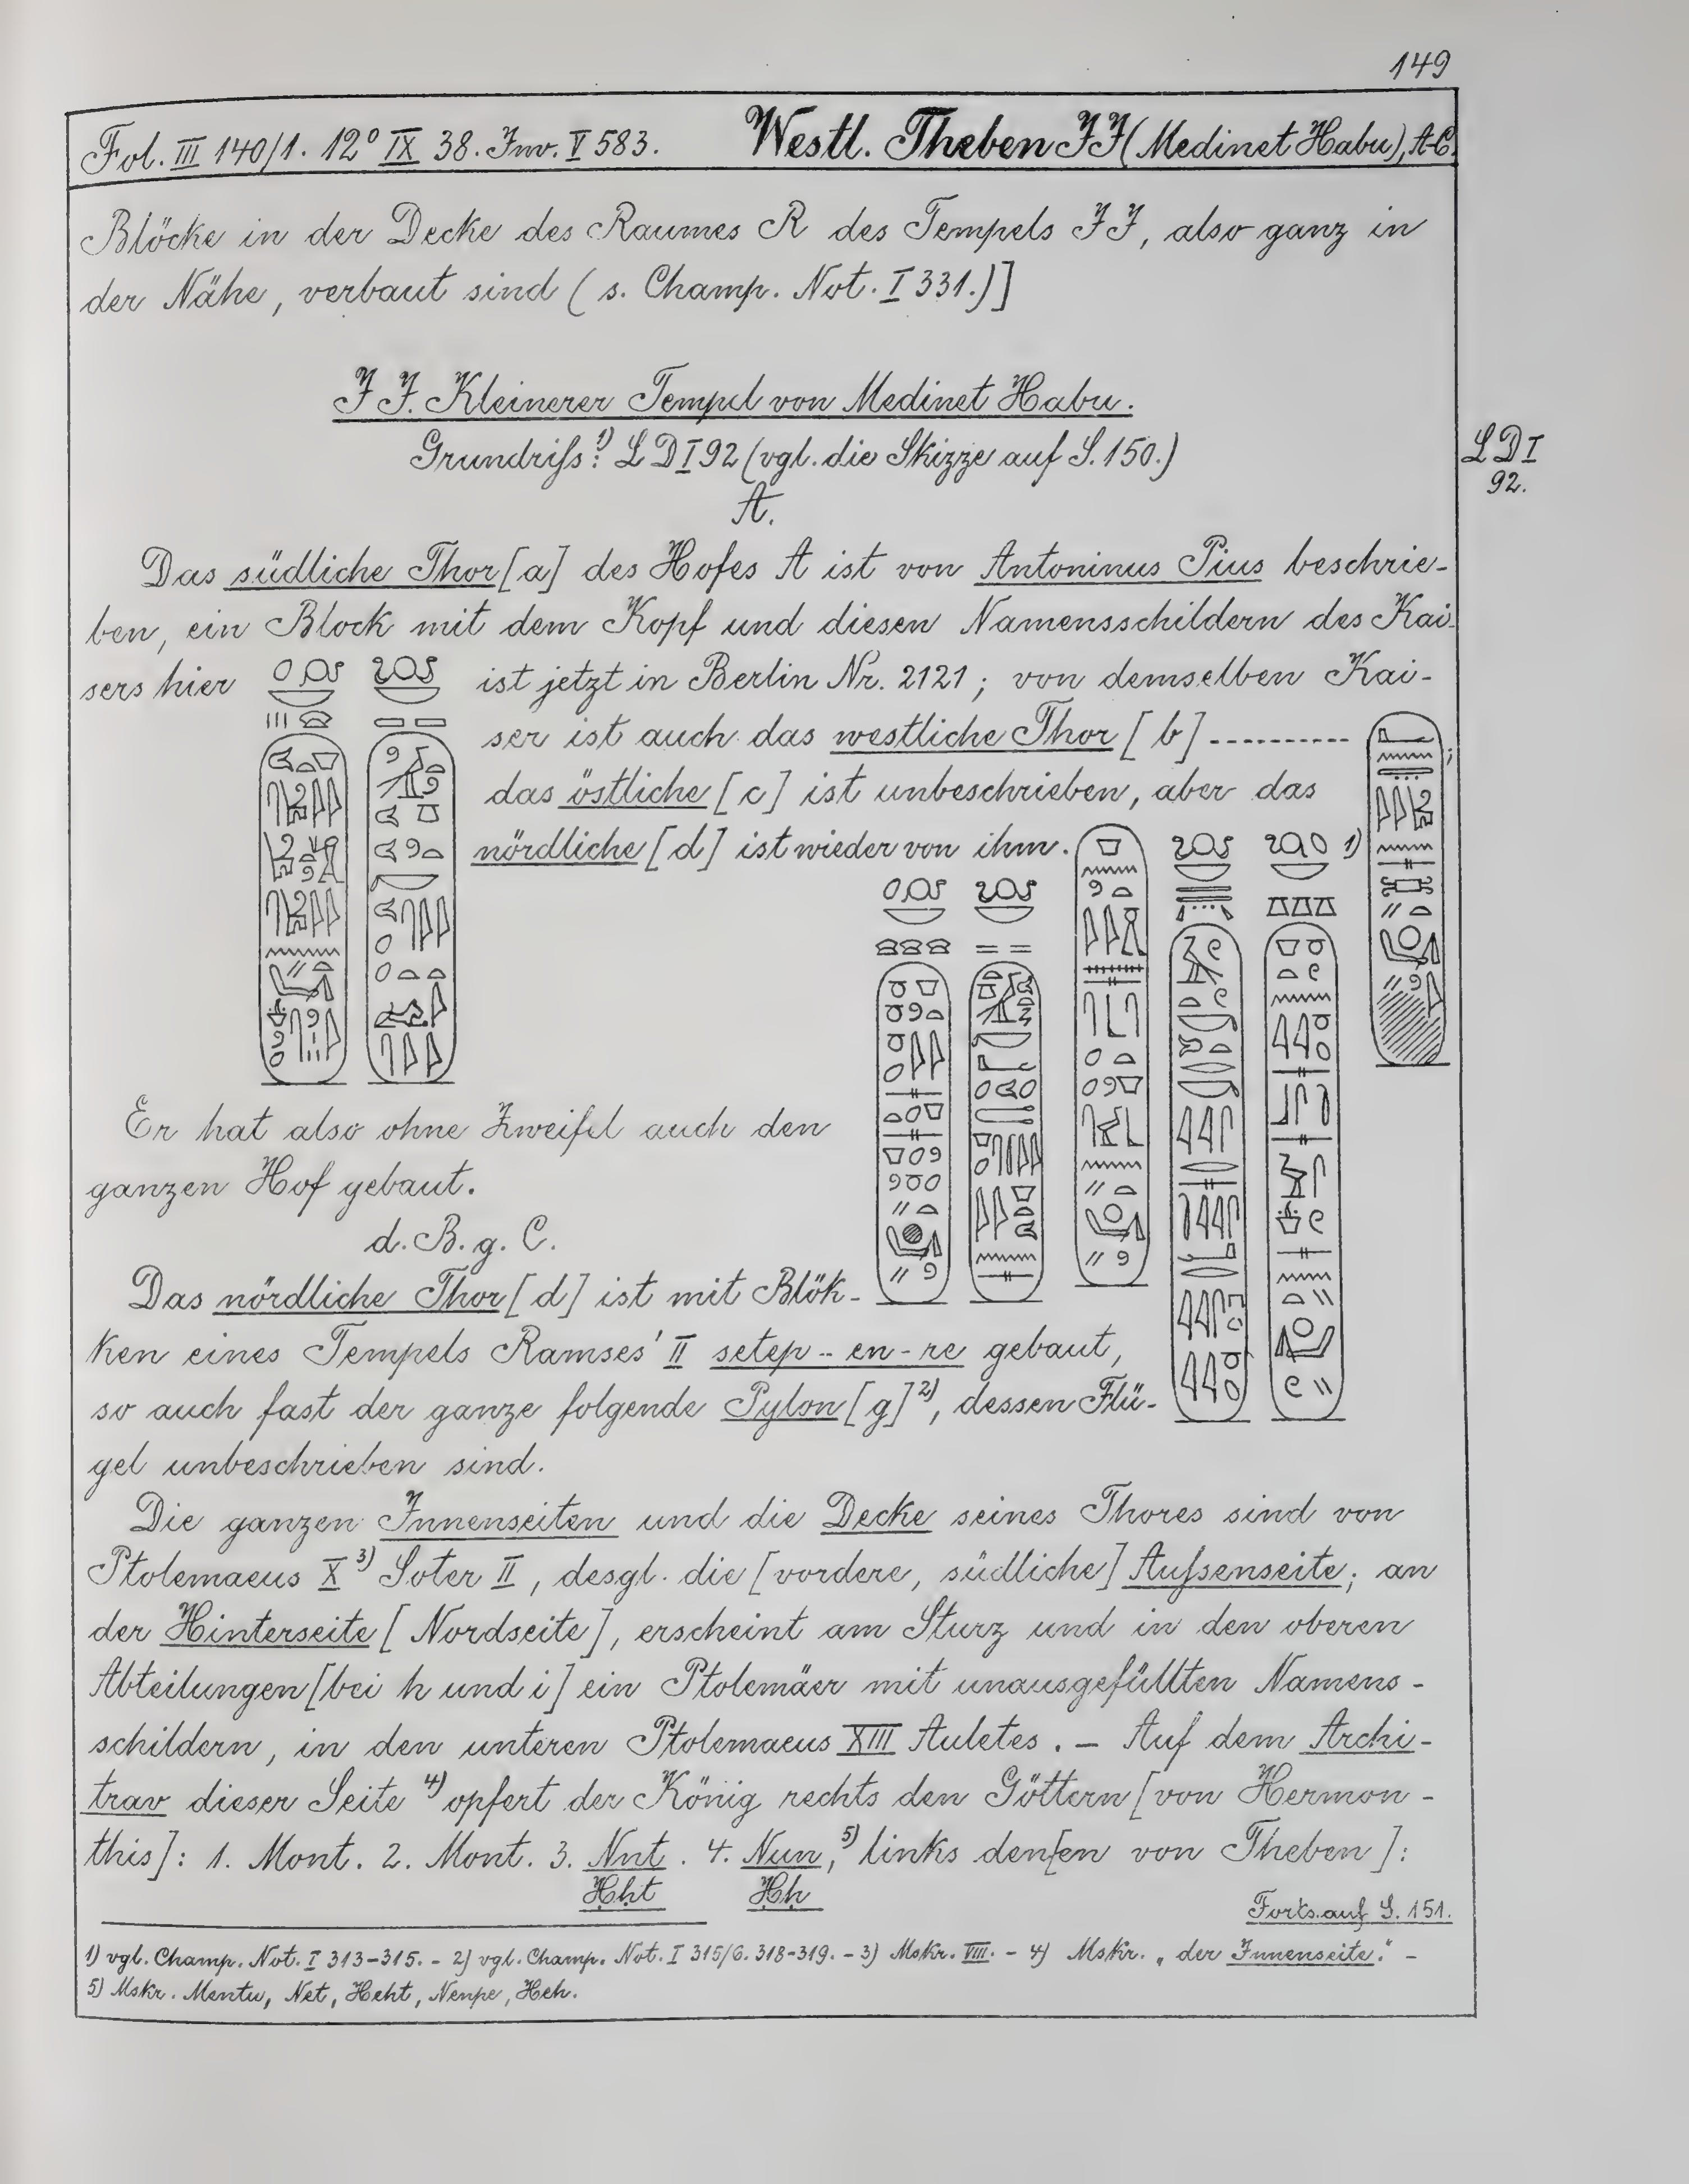 149
Fol. III 140/1. 12° IX 38. Inv. V 583. Westl. Theben JJ (Medinet Habu), A-C.
Blöcke in der Decke des Raumes R des Tempels JJ, also ganz in
der Nähe, verbaut sind (s. Champ. Not. I 331.)]
JJ. Kleinerer Tempel von Medinet Habu.
Grundriſs:¹) LD I 92 (vgl. die Skizze auf S. 150.)
LD I
92.
A.
Das südliche Thor [a] des Hofes A ist von Antoninus Pius beschrie-
ben, ein Block mit dem Kopf und diesen Namensschildern des Kai-
sers hier ist jetzt in Berlin Nr. 2121; von demselben Kai-
ser ist auch das westliche Thor [b] ---------- ;
das östliche [c] ist unbeschrieben, aber das
nördliche [d] ist wieder von ihm. 1)
Er hat also ohne Zweifel auch den
ganzen Hof gebaut.
d. B. g. C.
Das nördliche Thor [d] ist mit Blök-
ken eines Tempels Ramses' II setep-en-re gebaut,
so auch fast der ganze folgende Pylon [g]²), dessen Flü-
gel unbeschrieben sind.
Die ganzen Innenseiten und die Decke seines Thores sind von
Ptolemaeus X³) Soter II, desgl. die [vordere, südliche] Auſsenseite; an
der Hinterseite [Nordseite], erscheint am Sturz und in den oberen
Abteilungen [bei h und i] ein Ptolemäer mit unausgefüllten Namens-
schildern, in den unteren Ptolemaeus XIII Auletes. – Auf dem Archi-
trav dieser Seite⁴) opfert der König rechts den Göttern [von Hermon-
this]: 1. Mont. 2. Mont. 3. Nnt. 4. Nun,⁵) links den[en von Theben]:
Ḥḥt Ḥḥ
Forts. auf S. 151.
1) vgl. Champ. Not. I 313-315. - 2) vgl. Champ. Not. I 315/6. 318-319. - 3) Mskr. VIII. - 4) Mskr. „der Innenseite." -
5) Mskr. Mentu, Net, Heht, Nenpe, Heh.